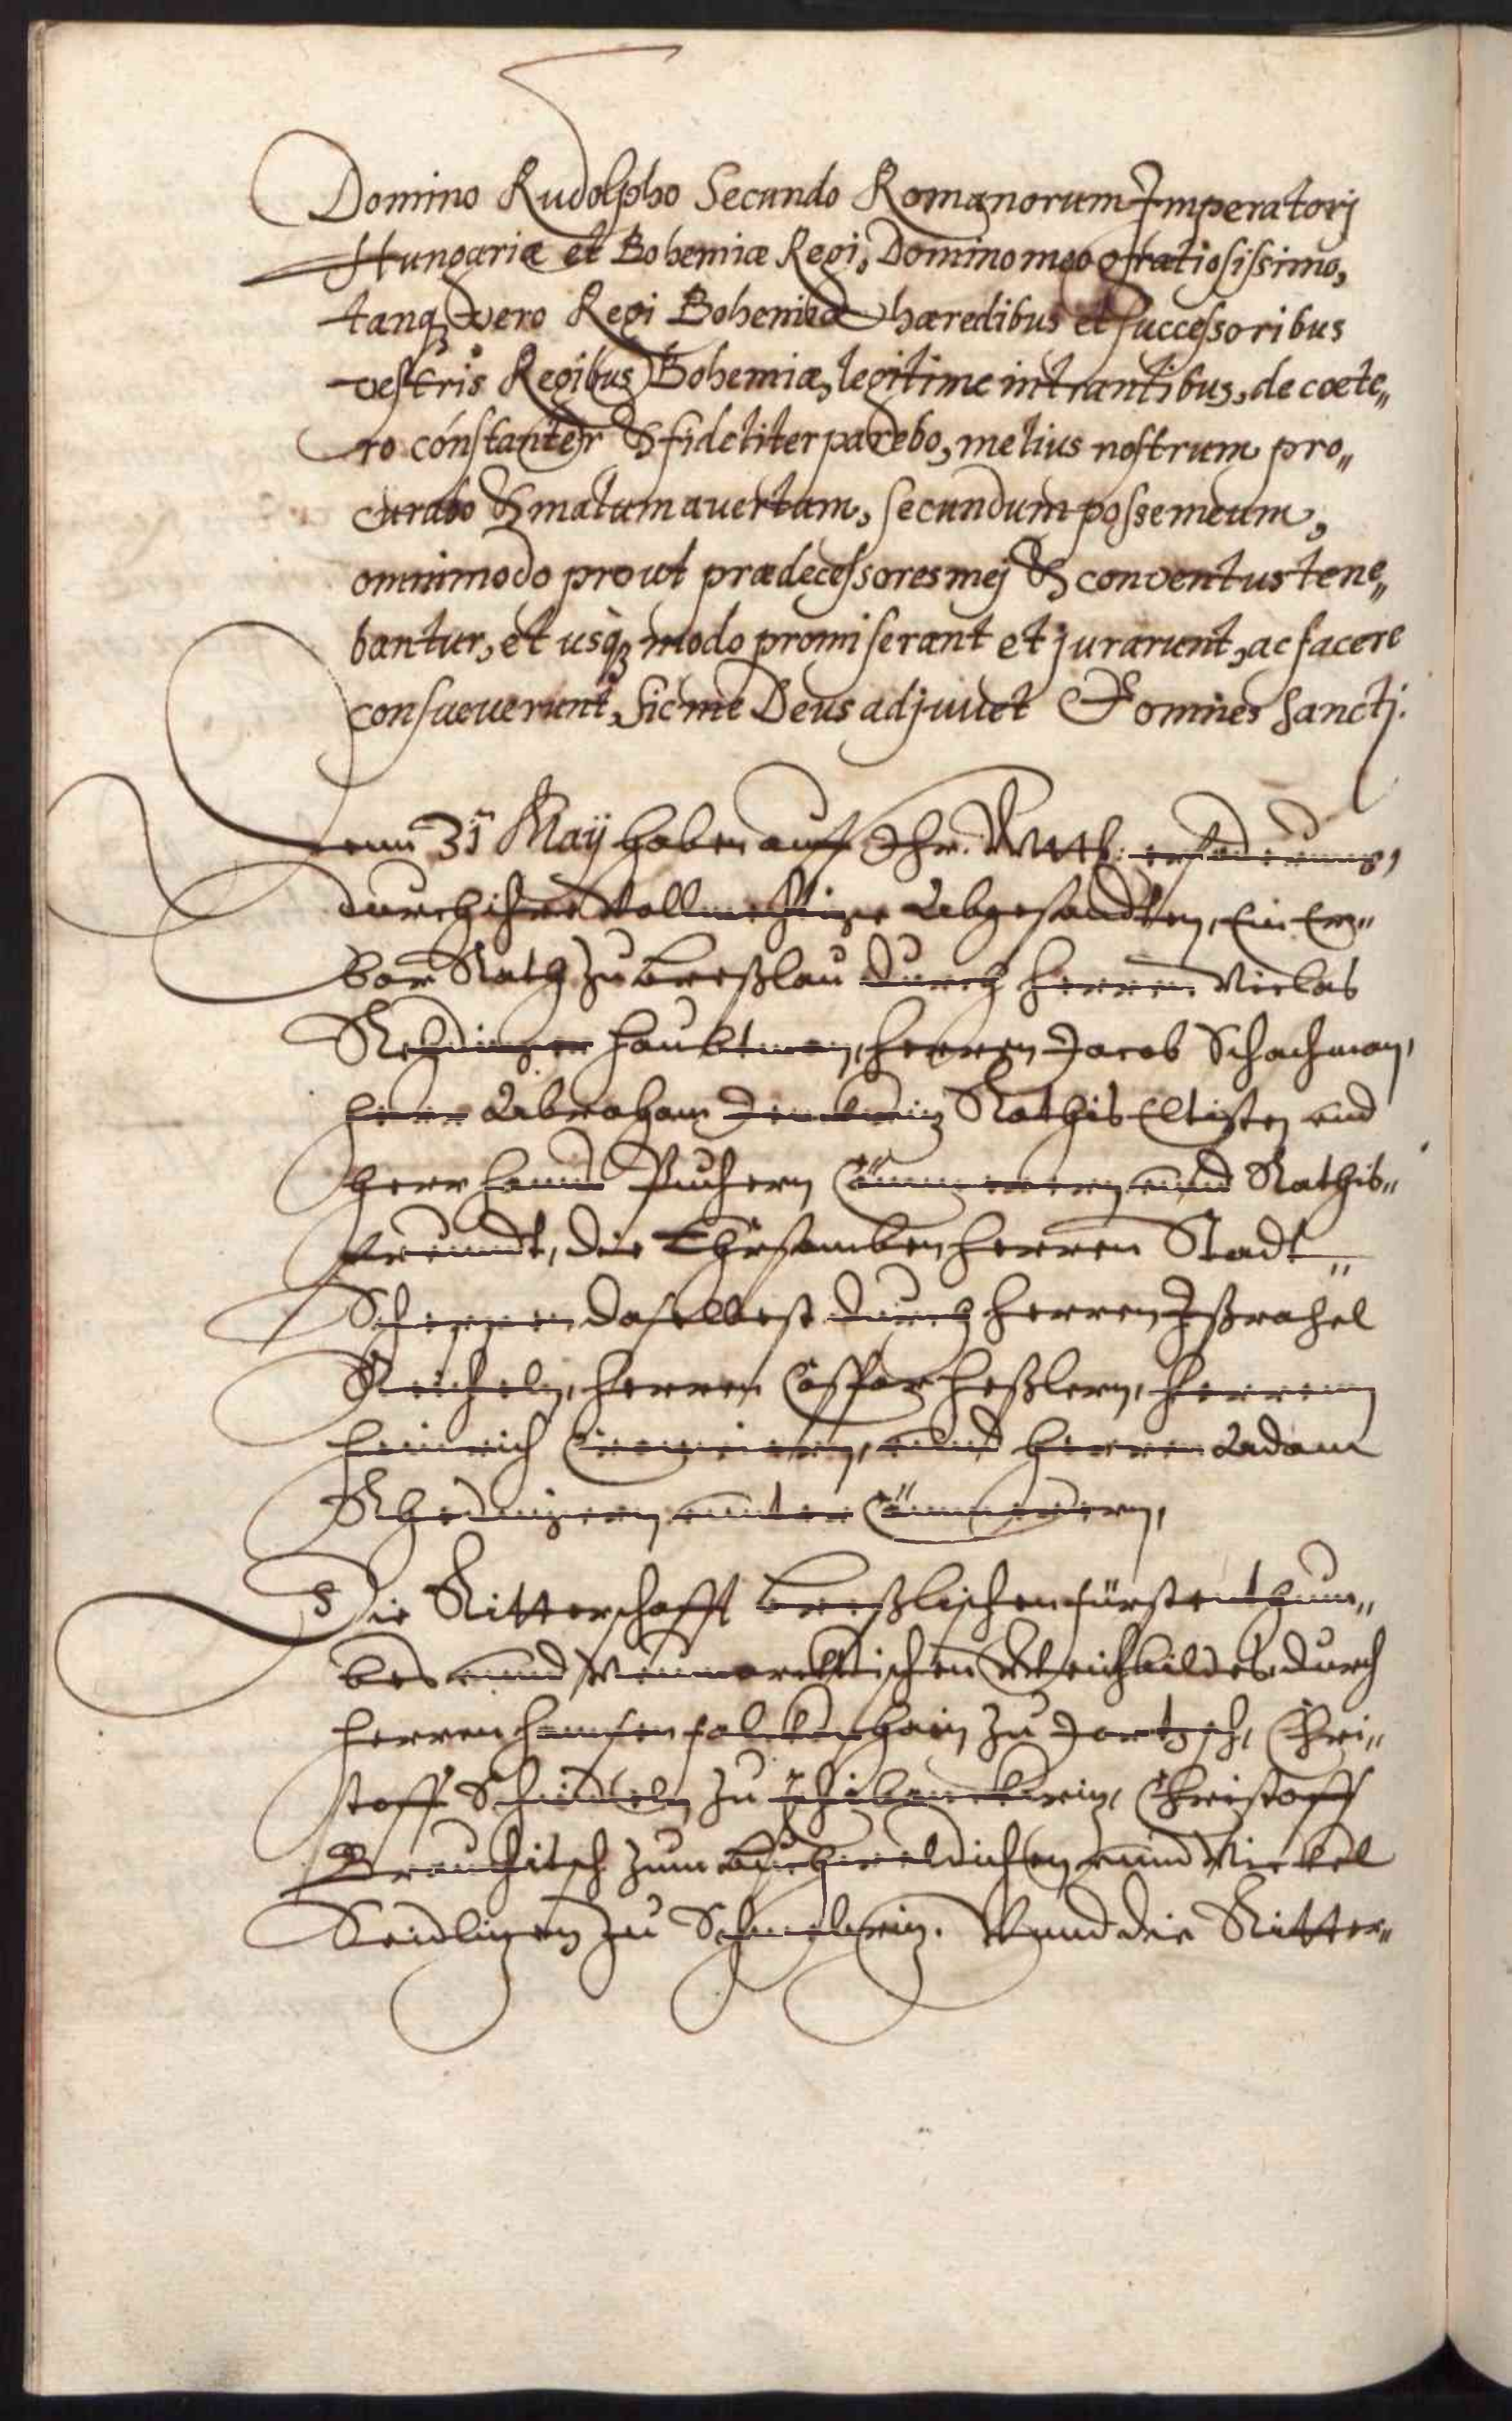 Domino Rudolpho Secundo Romanorum Imperatorj
Hungariæ et Bohemiæ Regi, Domino meo gratiosissimo,
tanq̃ vero Regi Bohemiæ hæredibus et successoribus
vestris Regibus Bohemiæ, legitime intrantibus, de coete„
ro constanter & fideliter parebo, melius nostrum pro„
curabo & malum avertam, secundum posse meum,
omnimodo prout prædecessores mej & conventus tene„
bantur, et usq̃ modo promiserant et jurarunt, ac facere
consueuerunt, Sic me Deus adjuvet & omnes Sancti.
31 May haben auff Ihr. Mtt: erfoderung,
durch ihre Vollmechtige Abgesandten, Ein Er„
bar Rath zu Breßlau durch Herren Niclas
Rehdinger Haubtman, Herren Jacob Schachman,
Herr Abraham Jenckwiz Rathis Eltisten und
Herr Hanns Puchern Cämmerern unnd Rathis„
freundt, die Ehrsamben Herren Stadt„
Scheppen daselbest durch Herren Ißrahel
Reicheln, Herren Casspar Heßlern, Herrenn
Heinrich unnd Herren Adam
Rhedingern unnter Cämmerern,
Die Ritterschafft Breßlischen fürstenthum„
bes unnd Neumarcktischen Weichbildes durch
Herren Hannsen Falckenhain zu Jortzsch, Chri„
stoff Schindeln zu Christoff
Brauchitsch zum unnd Nickel
Seidlizen zu Schmelwiz. Vnnd die Ritter„